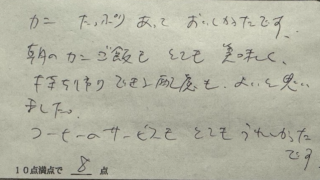 カニ たっぷり あって おいしかったです。
朝のカニご飯も とても 美味しく、
持ち帰りできる配慮も よいと思い
ました。
コーヒーのサービスも とても うれしかった
です。
10点満点で 8 点